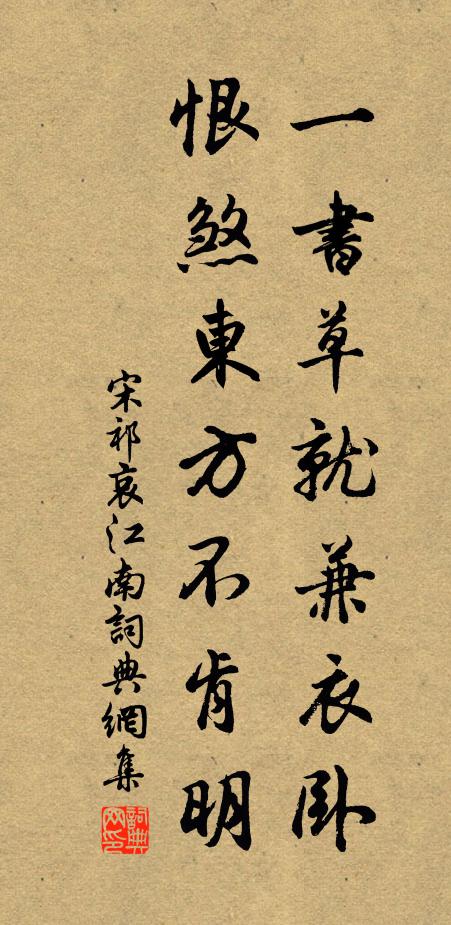 一書草就兼衣卧
恨煞東方不肯明
宋祁哀江南詞典網集
詞典网印